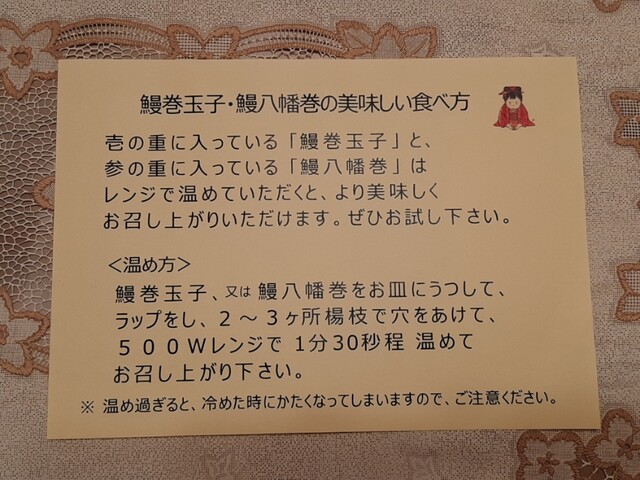 鰻巻玉子・鰻八幡巻の美味しい食べ方
壱の重に入っている「鰻巻玉子」と、
参の重に入っている「鰻八幡巻」は
レンジで温めていただくと、より美味しく
お召し上がりいただけます。ぜひお試し下さい。
＜温め方＞
鰻巻玉子、又は鰻八幡巻をお皿にうつして、
ラップをし、２～３ヶ所楊枝で穴をあけて、
５００Ｗレンジで 1分30秒程 温めて
お召し上がり下さい。
※ 温め過ぎると、冷めた時にかたくなってしまいますので、ご注意ください。